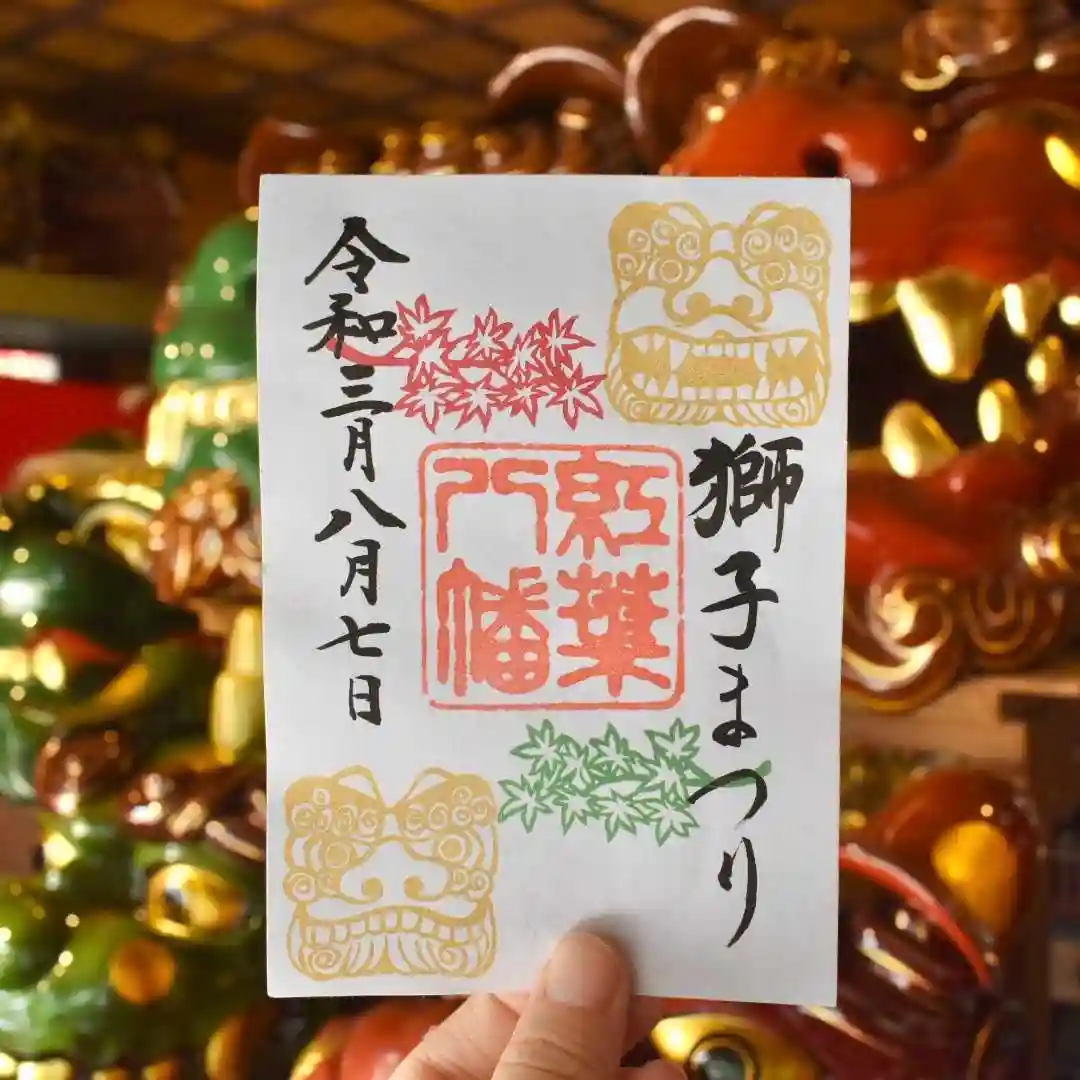 獅子まつり
紅葉
八幡
令和三月八月七日